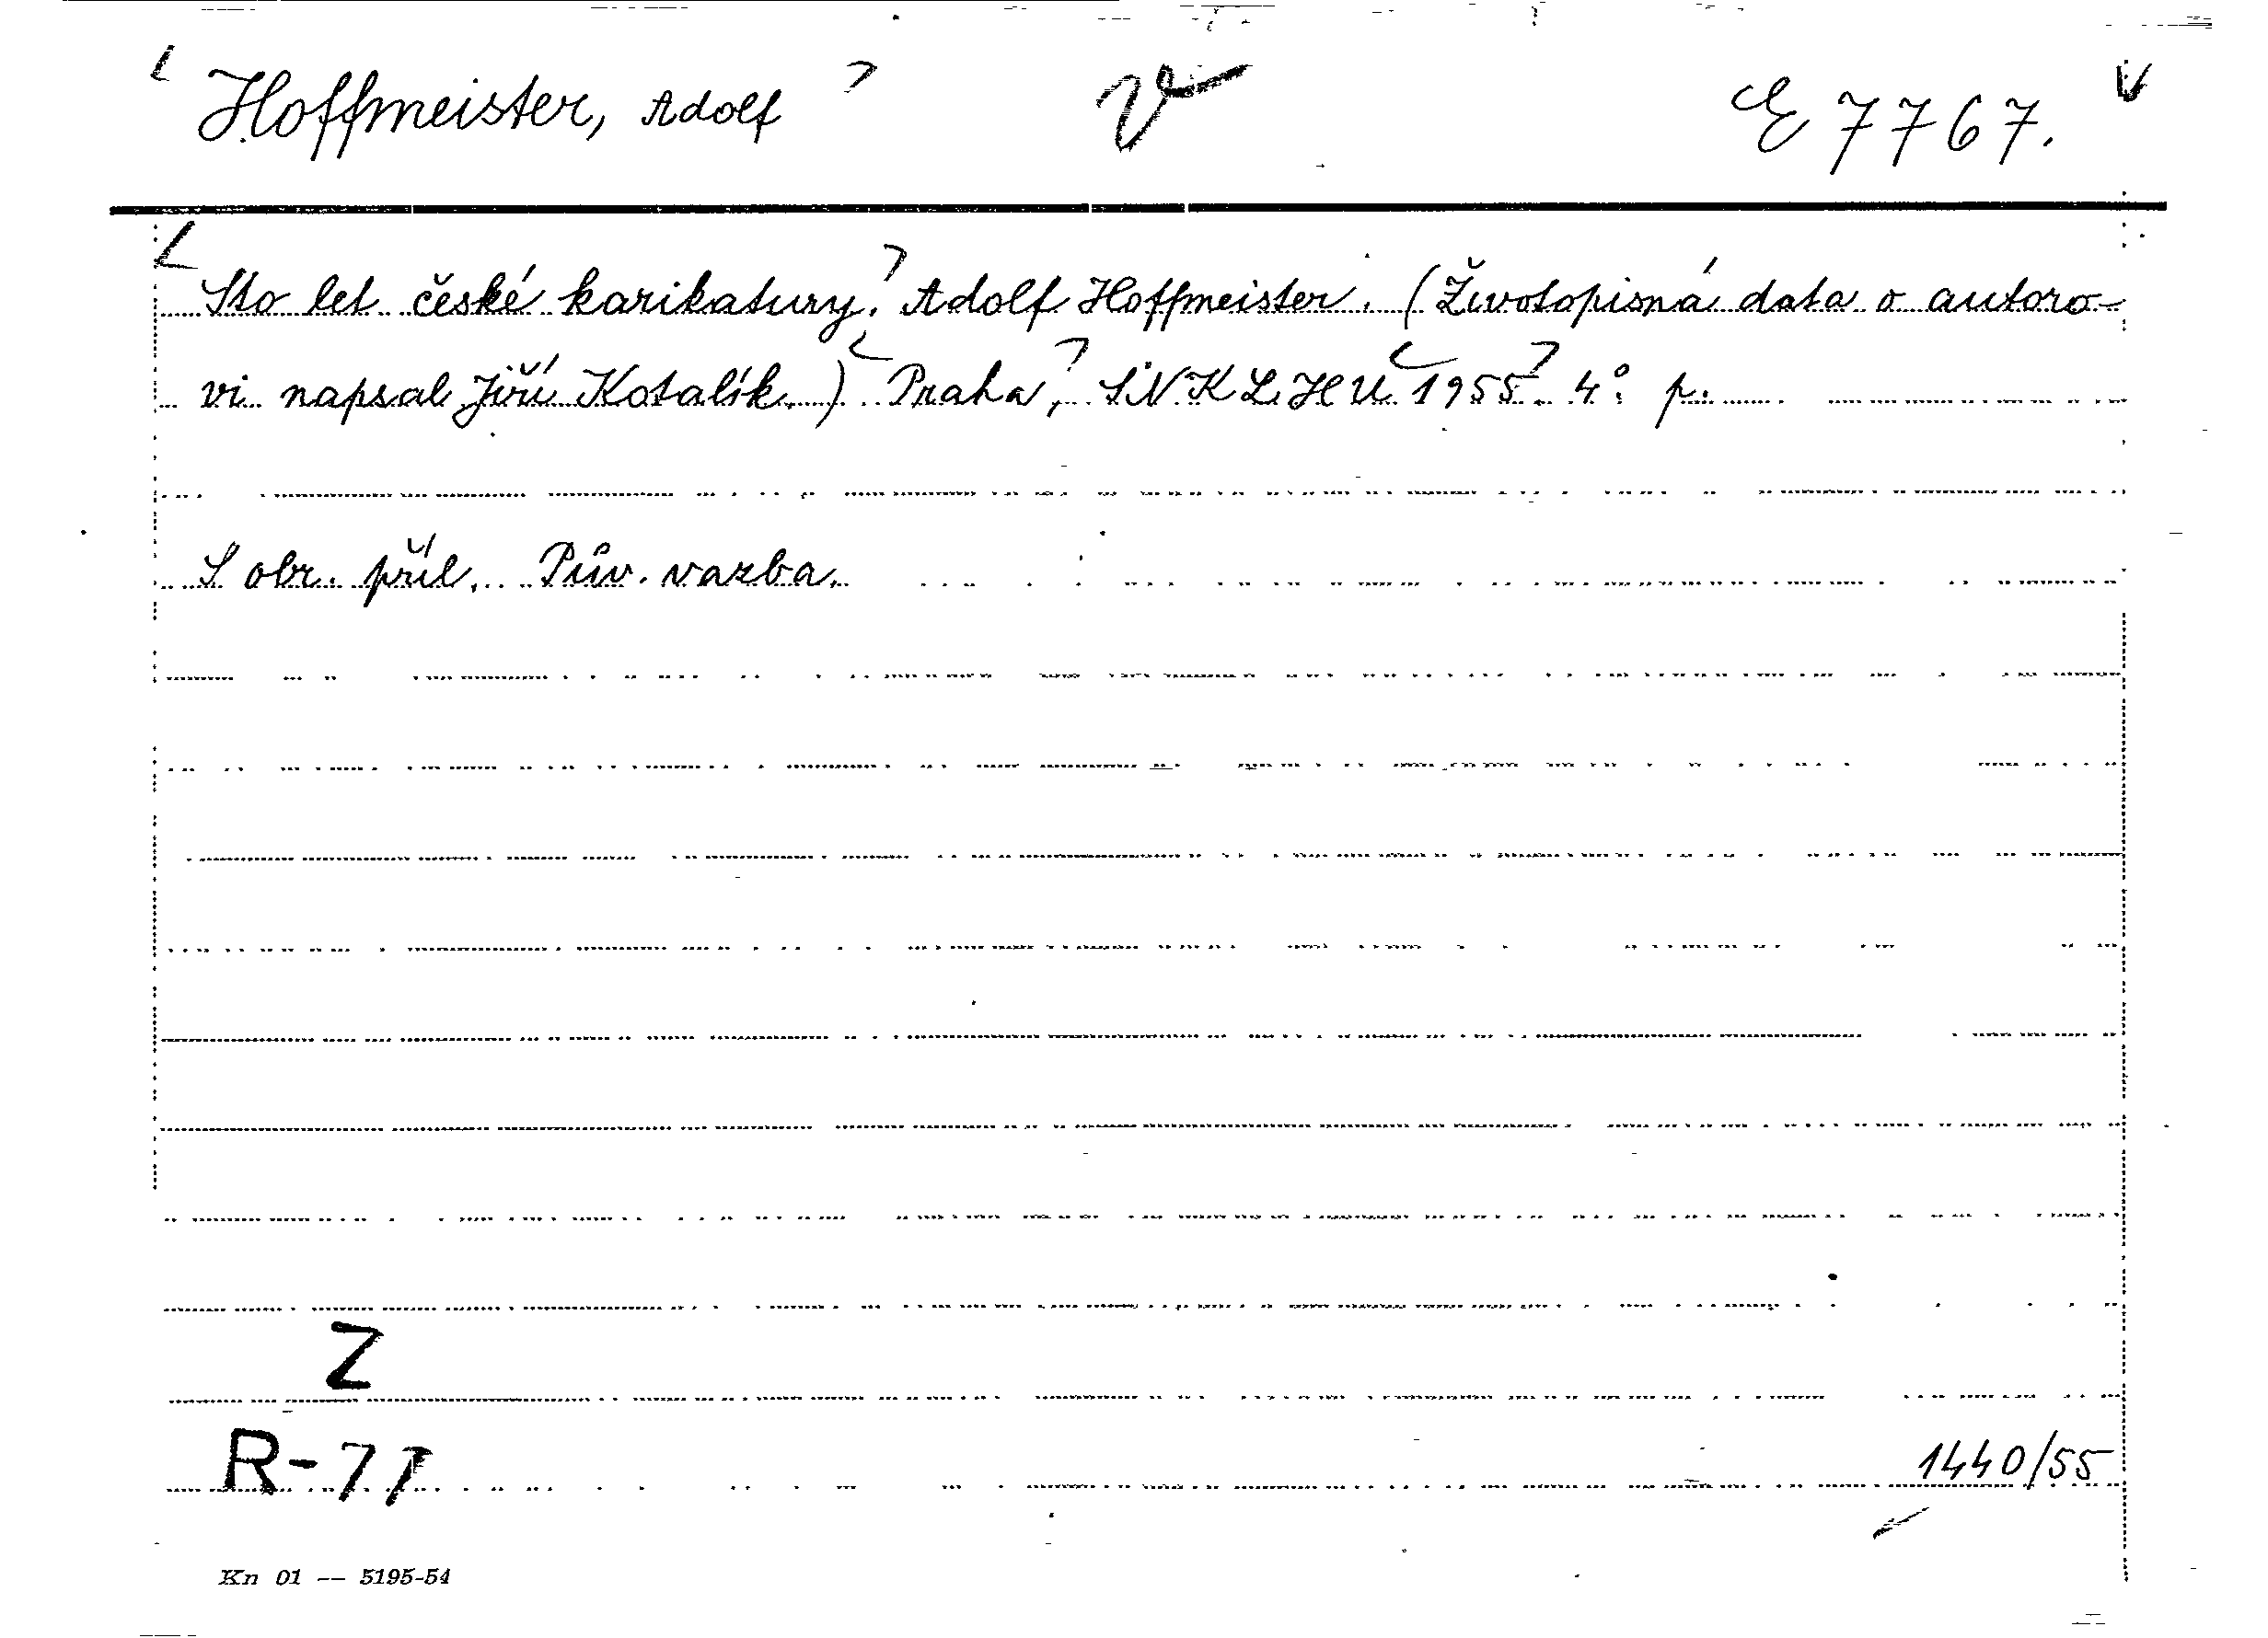 Hoffmeister, Adolf V E 7767.
Sto let české karikatury. Adolf Hoffmeister. (Životopisná data o autoro-
vi napsal Jiří Kotalík.) Praha, SNKLHU 1955. 4° p.
S obr. příl. Pův. vazba.
Z
R-77 1440/55
Kn 01 — 5195-54